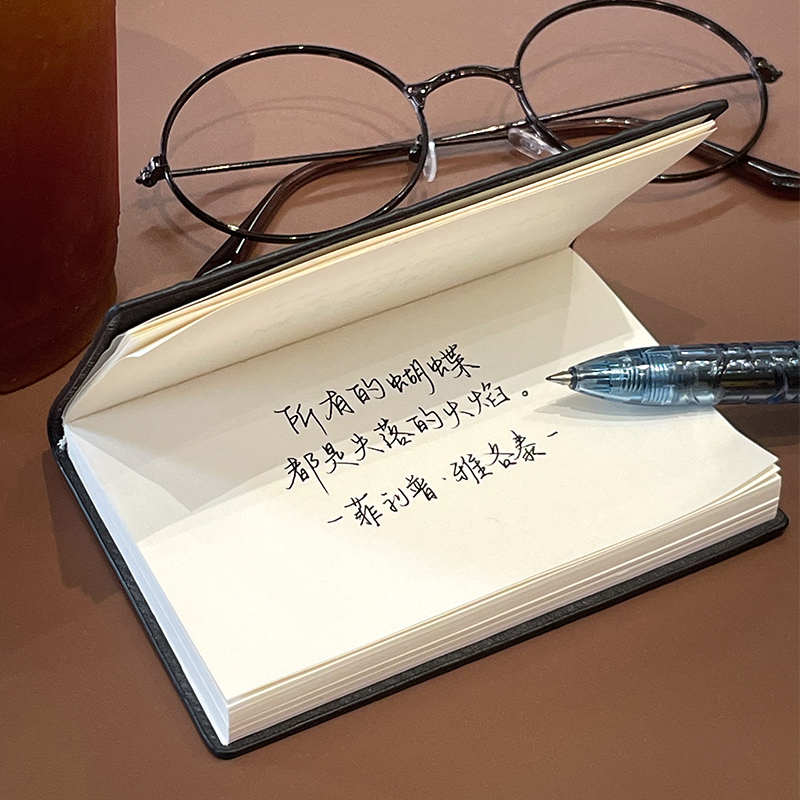 所有的蝴蝶
都是失落的火焰。
-菲利普·雅各泰-